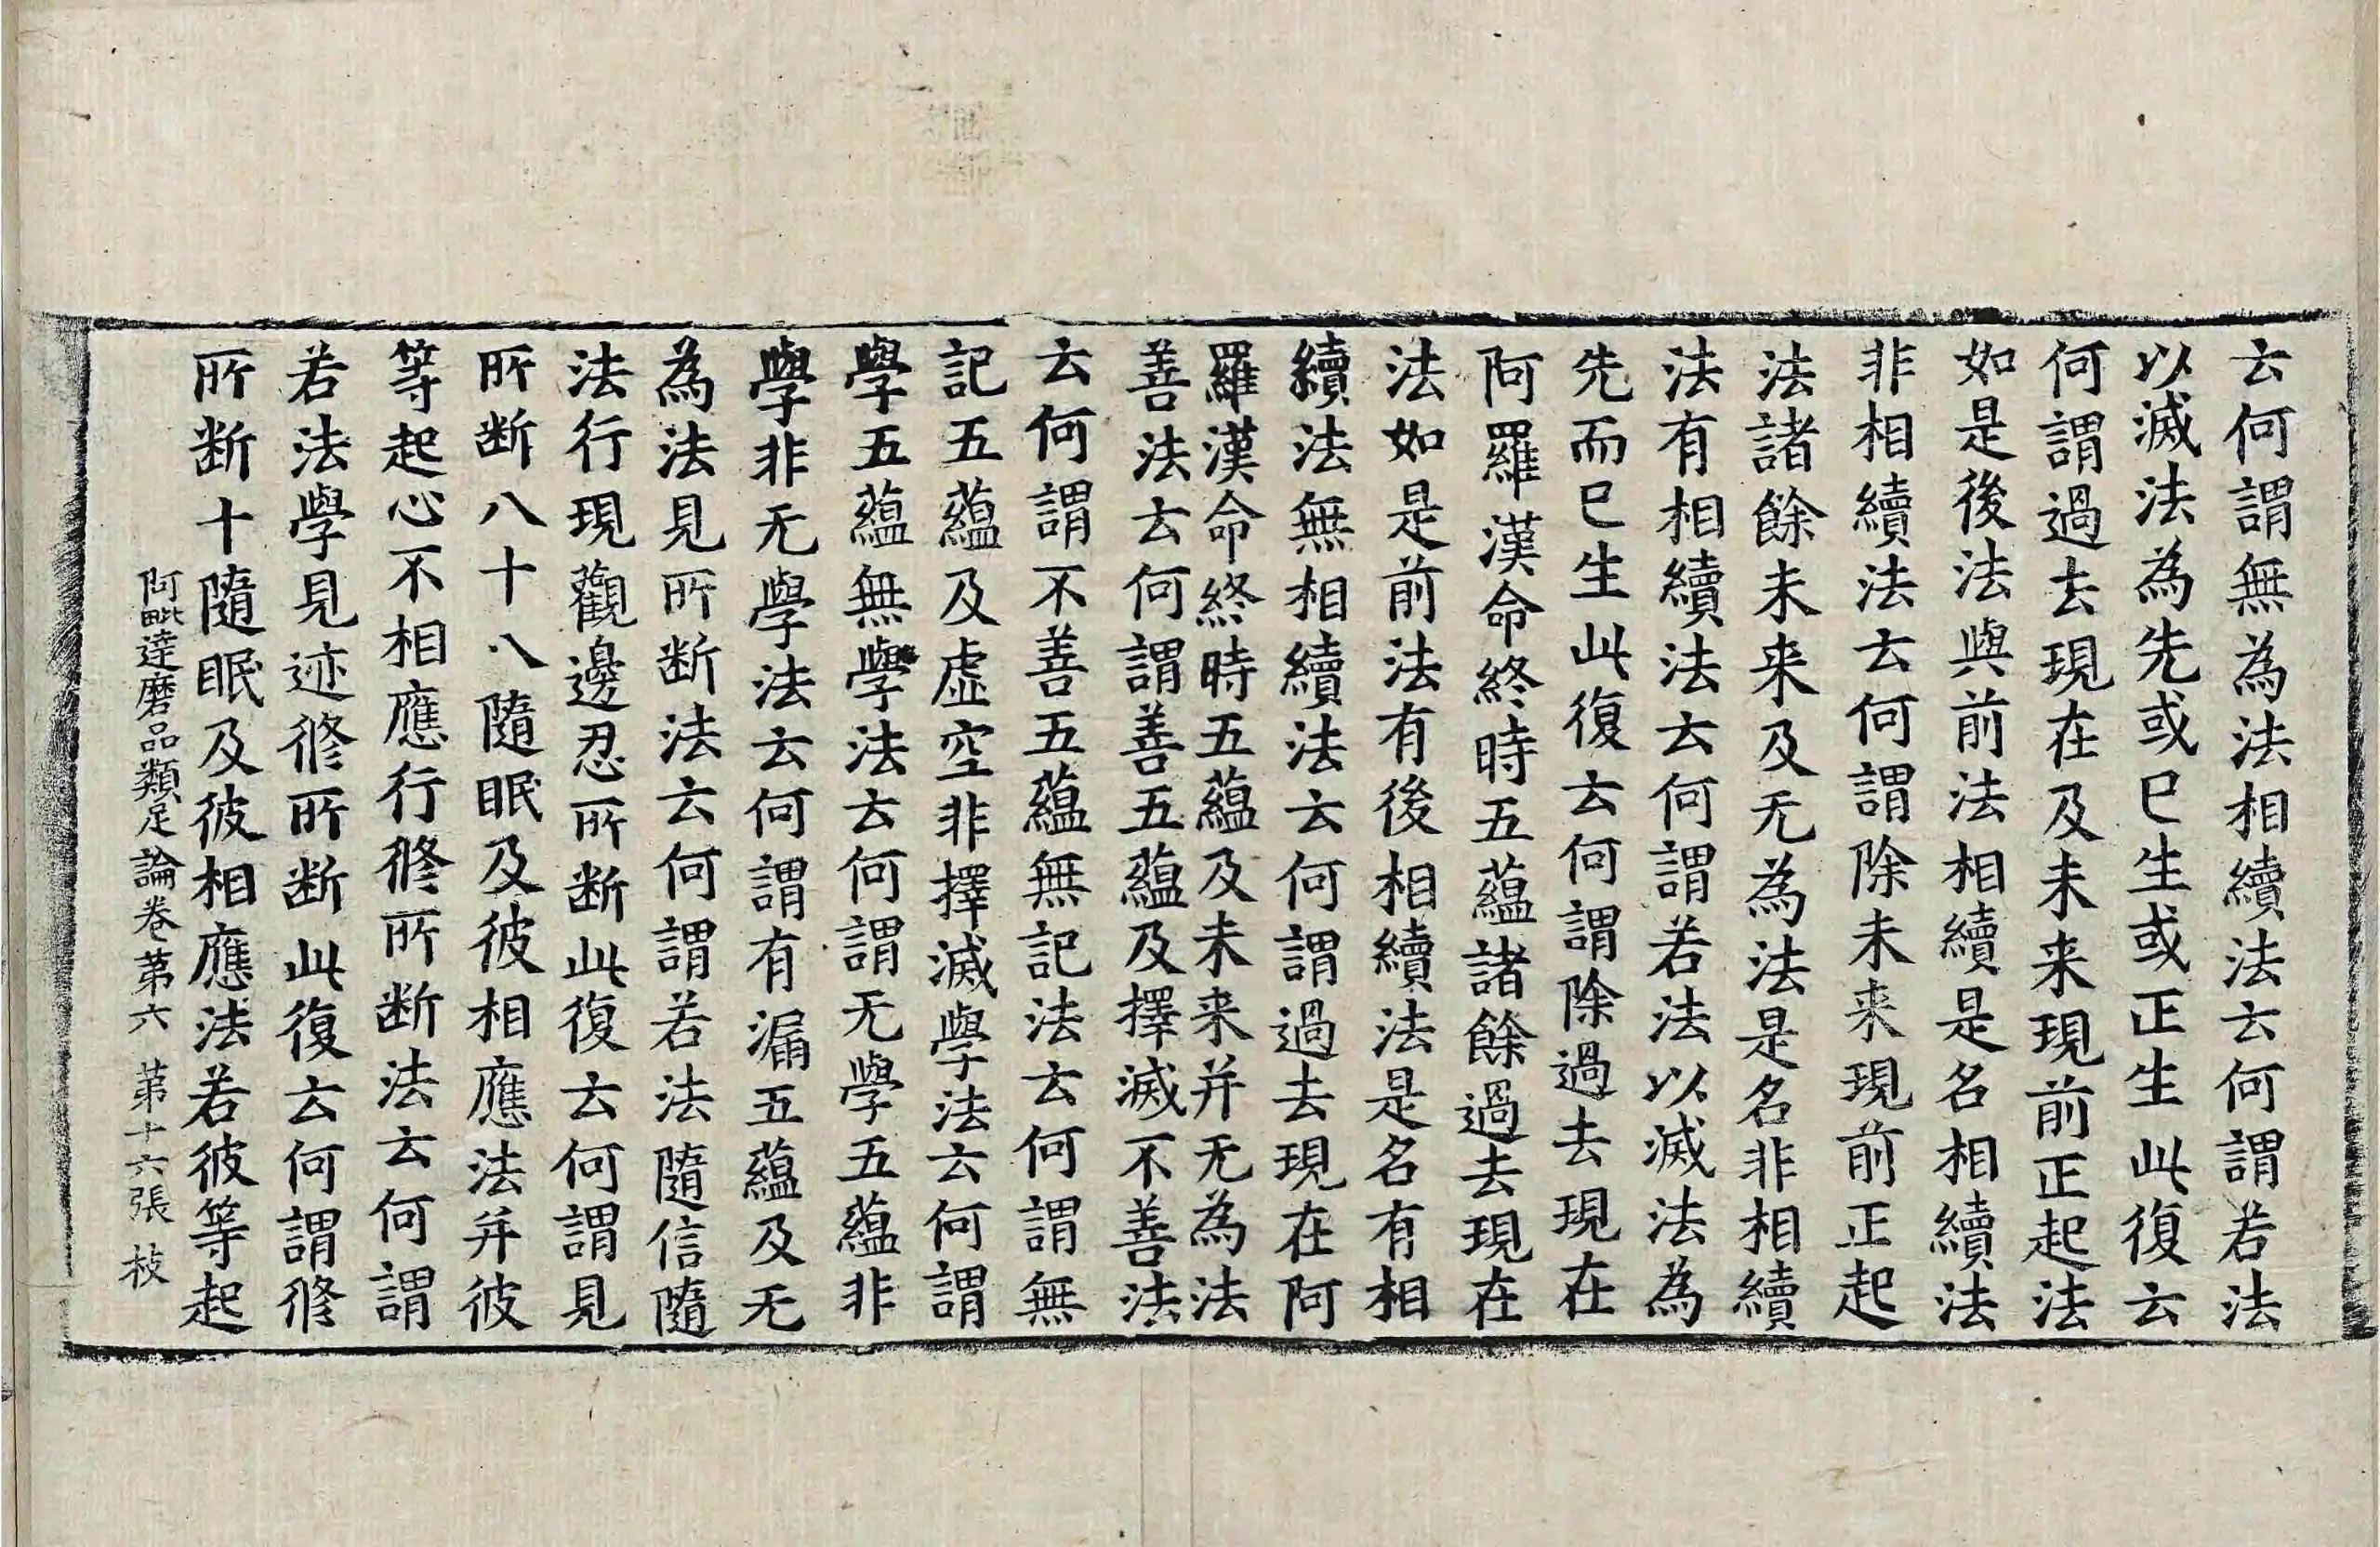 云何謂無為法相續法云何謂若法
以滅法為先或已生或正生此復云
何謂過去現在及未来現前正起法
如是後法與前法相續是名相續法
非相續法云何謂除未来現前正起
法諸餘未来及无為法是名非相續
法有相續法云何謂若法以滅法為
先而已生此復云何謂除過去現在
阿羅漢命終時五蘊諸餘過去現在
法如是前法有後相續法是名有相
續法無相續法云何謂過去現在阿
羅漢命終時五蘊及未来并无為法
善法云何謂善五蘊及擇滅不善法
云何謂不善五蘊無記法云何謂無
記五蘊及虛空非擇滅學法云何謂
學五蘊無學法云何謂无學五蘊非
學非无學法云何謂有漏五蘊及无
為法見所断法云何謂若法隨信隨
法行現觀邊忍所断此復云何謂見
所断八十八隨眠及彼相應法并彼
等起心不相應行修所断法云何謂
若法學見迹修所断此復云何謂修
所断十隨眠及彼相應法若彼等起
阿毗達磨品類足論卷第六 第十六張 枝